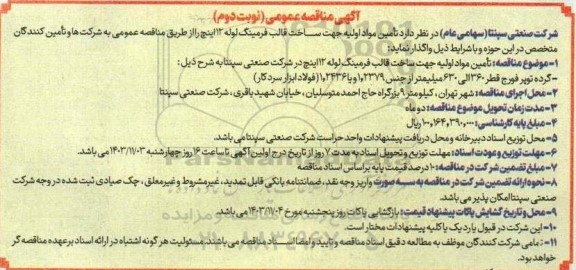 آگهی مناقصه عمومی (نوبت دوم)
شرکت صنعتی سپنتا (سهامی عام) در نظر دارد تأمین مواد اولیه جهت ساخت قالب فرمینگ لوله ۱۲ اینچ را از طریق مناقصه عمومی به شرکت ها و تأمین کنندگان
متخصص در این حوزه و با شرایط ذیل واگذار نماید:
۱- موضوع مناقصه: تأمین مواد اولیه جهت ساخت قالب فرمینگ لوله ۱۲ اینچ در شرکت صنعتی سپنتا به شرح ذیل:
- گرده توپر فورج قطر ۳۶۰ الی ۶۳۰ میلیمتر از جنس ۱٫۲۳۷۹ و یا ۱٫۲۴۳۶ (فولاد ابزار سردکار)
۲- محل اجرای مناقصه: شهر تهران، کیلومتر ۹ بزرگراه حاج احمد متوسلیان، خیابان شهید باقری، شرکت صنعتی سپنتا
۳- مدت زمان تحویل موضوع مناقصه: دو ماه
۴- مبلغ پایه کارشناسی: ۱۰۰,۱۶۴,۳۹۰,۰۰۰ ریال
۵- محل توزیع اسناد دبیرخانه و محل دریافت پیشنهادات واحد حراست شرکت صنعتی سپنتا می باشد.
۶- مهلت توزیع و عودت اسناد: مهلت توزیع و تحویل اسناد به مدت ۷ روز از تاریخ درج اولین آگهی تا ساعت ۱۶ روز چهارشنبه ۱۴۰۳/۱۱/۰۳ می باشد.
۷- مبلغ تضمین شرکت در مناقصه: ۲۰ درصد قیمت پایه براساس اسناد مناقصه
۸- نحوه ارائه تضمین شرکت در مناقصه به سه صورت واریز وجه نقد، ضمانتنامه بانکی قابل تمدید، غیرمشروط و غیرمعلق، چک صیادی ثبت شده در وجه شرکت
صنعتی سپنتا امکان پذیر می باشد.
۹- محل و تاریخ گشایش پاکات پیشنهاد قیمت: بازگشایی پاکات روز پنجشنبه مورخ ۱۴۰۳/۱۱/۰۴ می باشد.
۱۰- این شرکت در قبول یا رد یک یا کلیه پیشنهادات مختار است.
۱۱- تمامی شرکت کنندگان موظف به مطالعه دقیق اسناد مناقصه و تایید و امضا اسناد مناقصه می باشند. مسئولیت هر گونه اشتباه در ارائه اسناد بر عهده مناقصه گر
خواهد بود.